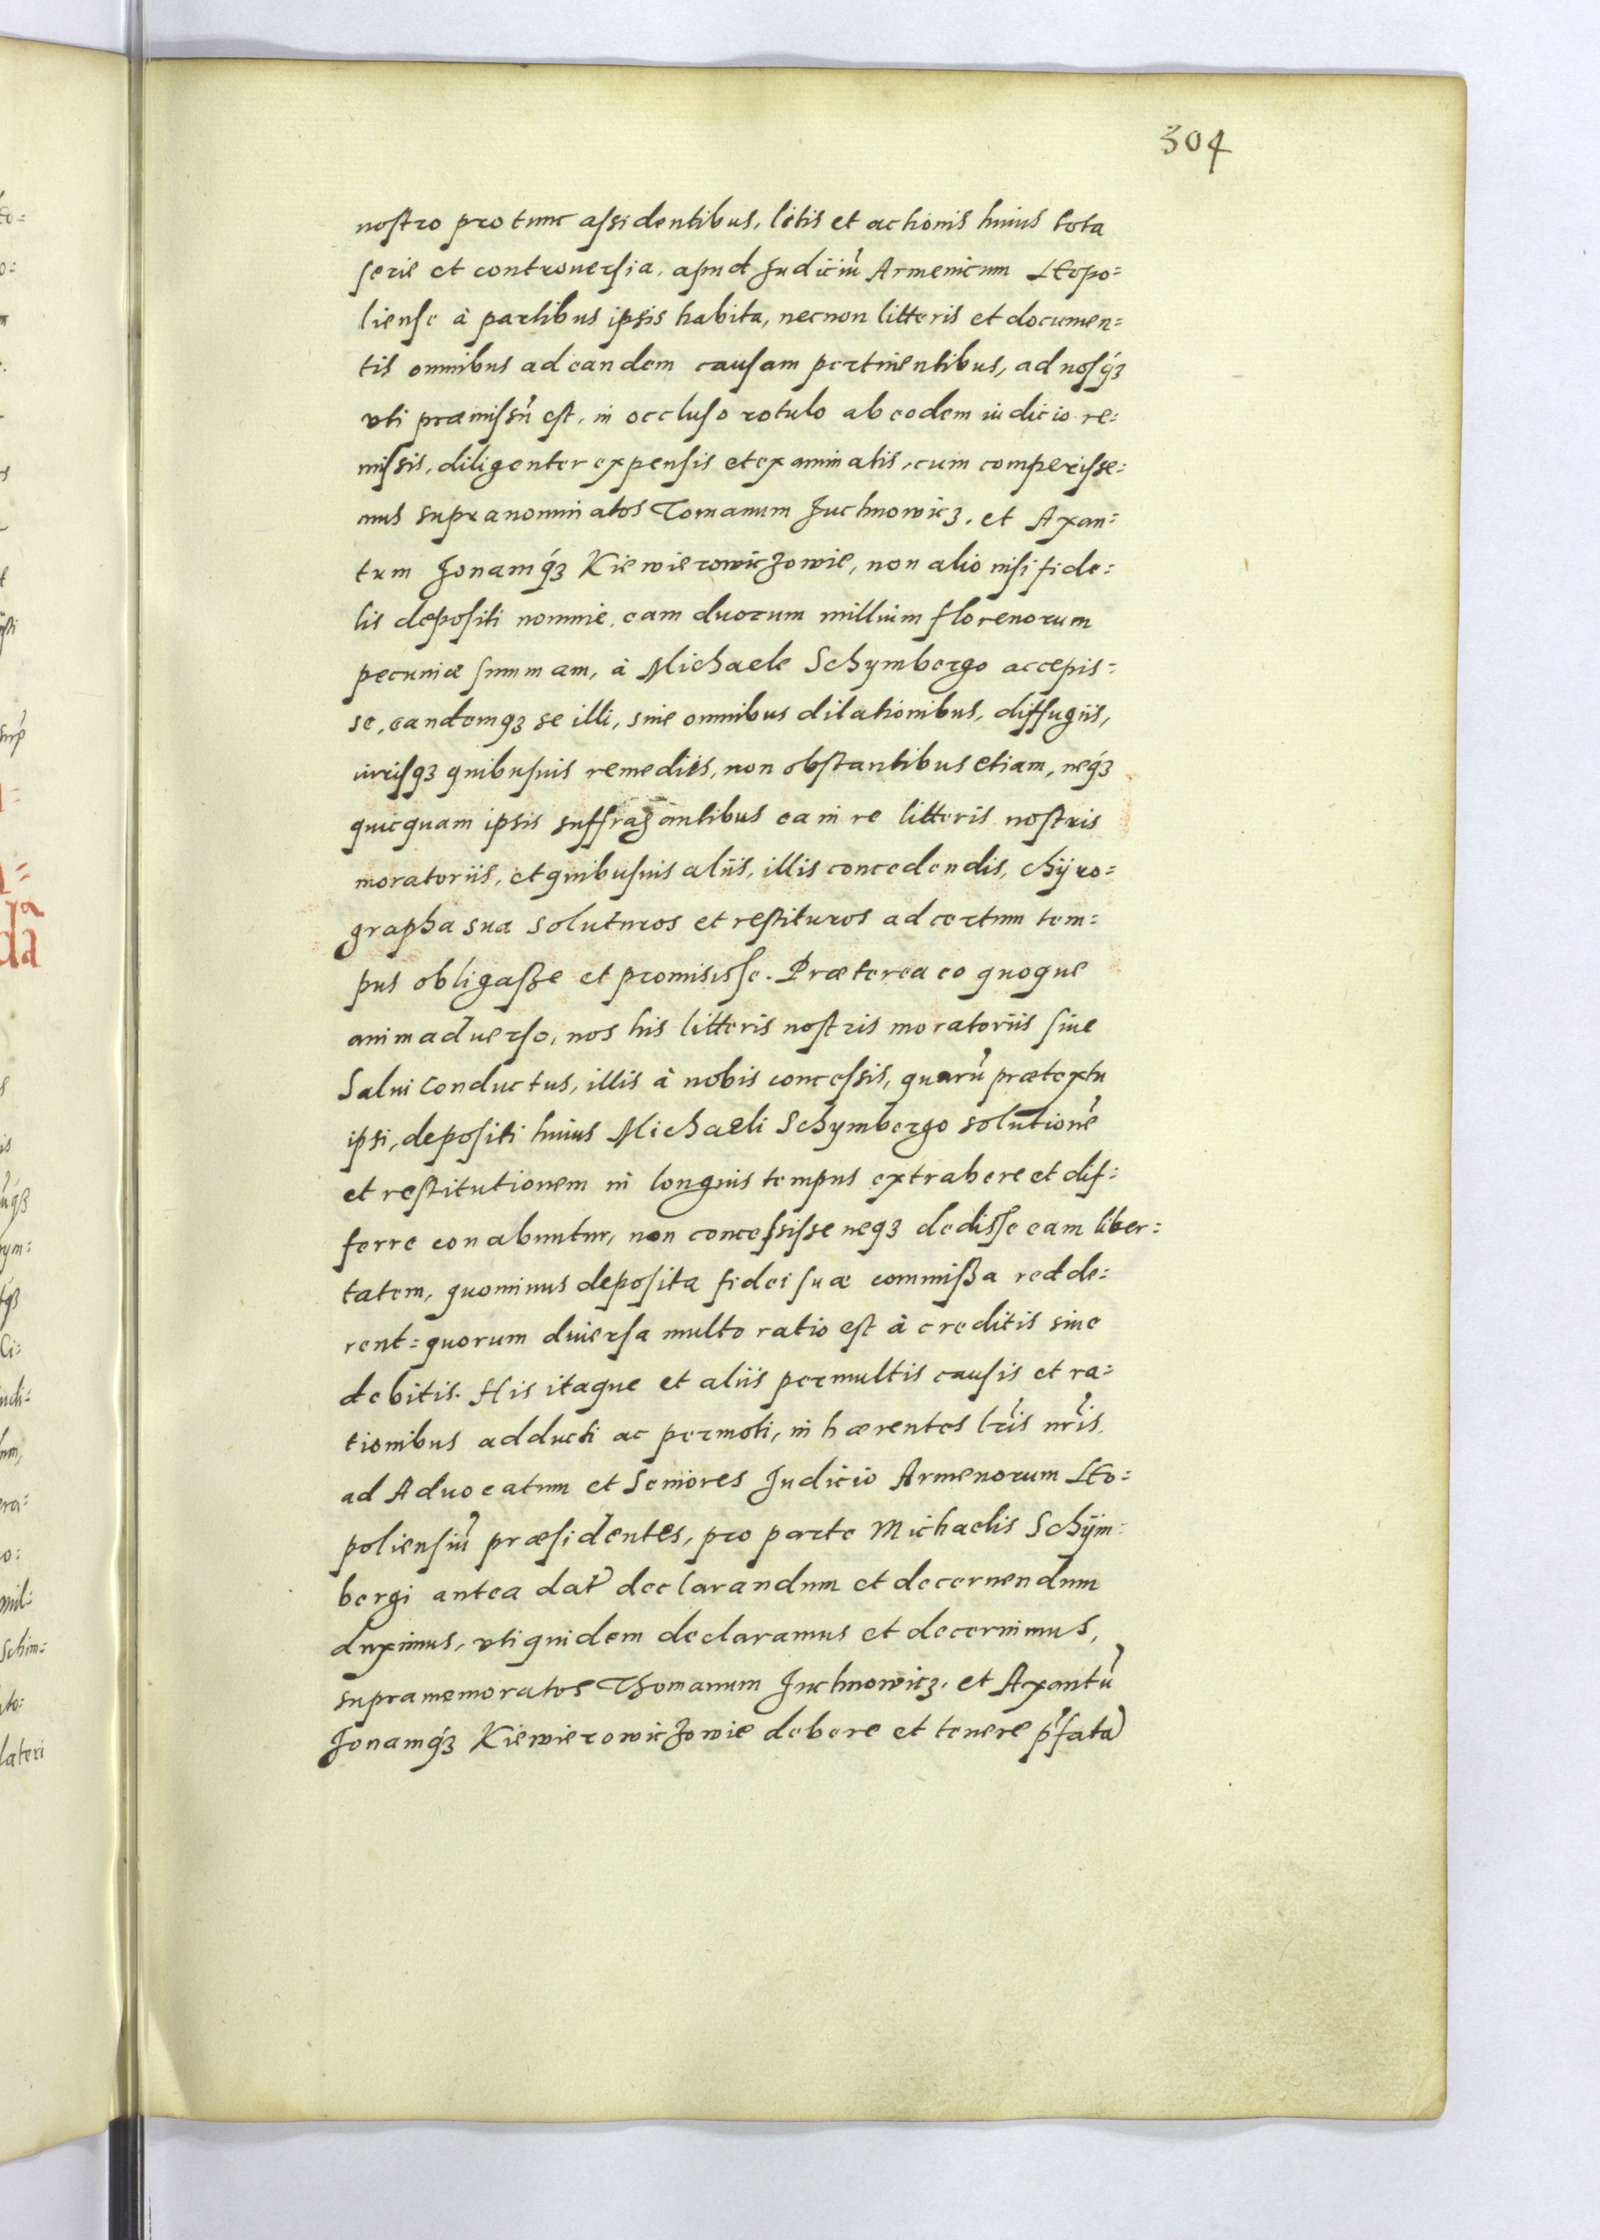 304
nostro pro tunc assidentibus, litis et actionis huius tota
serie et controuersia, apud Judiciũ Armenicum Leopo=
liense à partibus ipsis habita, necnon litteris et documen=
tis omnibus ad eandem causam pertinentibus, ad nosq́ꝫ
vti præmissũ est, in occluso rotulo ab eodem iudicio re=
missis, diligenter expensis et examinatis, cum comperisse=
mus supranominatos Tomanum Juchnowicz, et Axan=
tum Jonamq́ꝫ Kiewierowiczowie, non alio nisi fide=
lis depositi nomine, eam duorum millium florenorum
pecuniæ summam, à Michaele Schymbergo accepis=
se, eandemqꝫ se illi, sine omnibus dilationibus, diffugiis,
iurisqꝫ quibusuis remediis, non obstantibus etiam, neq́ꝫ
quicquam ipsis suffragantibus ea in re litteris nostris
moratoriis, et quibusuis aliis, illis concedendis, chijro=
grapha sua soluturos et restituros ad certum tem=
pus obligasse et promisisse. Præterea eo quoque
animaduerso, nos his litteris nostris moratoriis siue
Salui Conductus, illis à nobis concessis, quarũ prætextu
ipsi, depositi huius Michaeli Schymbergo solutionẽ
et restitutionem in longius tempus extrahere et dif=
ferre conabuntur, non concessisse neqꝫ dedisse eam liber=
tatem, quominus deposita fidei suæ commissa redde=
rent= quorum diuersa multo ratio est à creditis siue
debitis. His itaque et aliis permultis causis et ra=
tionibus adducti ac permoti, inhærentes lr̃is nr̃is,
ad Aduocatum et Seniores Judicio Armenorum Leo=
poliensiũ præsidentes, pro parte Michaelis Schijm=
bergi antea dat̃ declarandum et decernendum
duximus, vti quidem declaramus et decernimus,
supramemoratos Thomanum Juchnowicz, et Axantũ
Jonamq́ꝫ Kiewierowiczowie debere et tenere p̃fatã